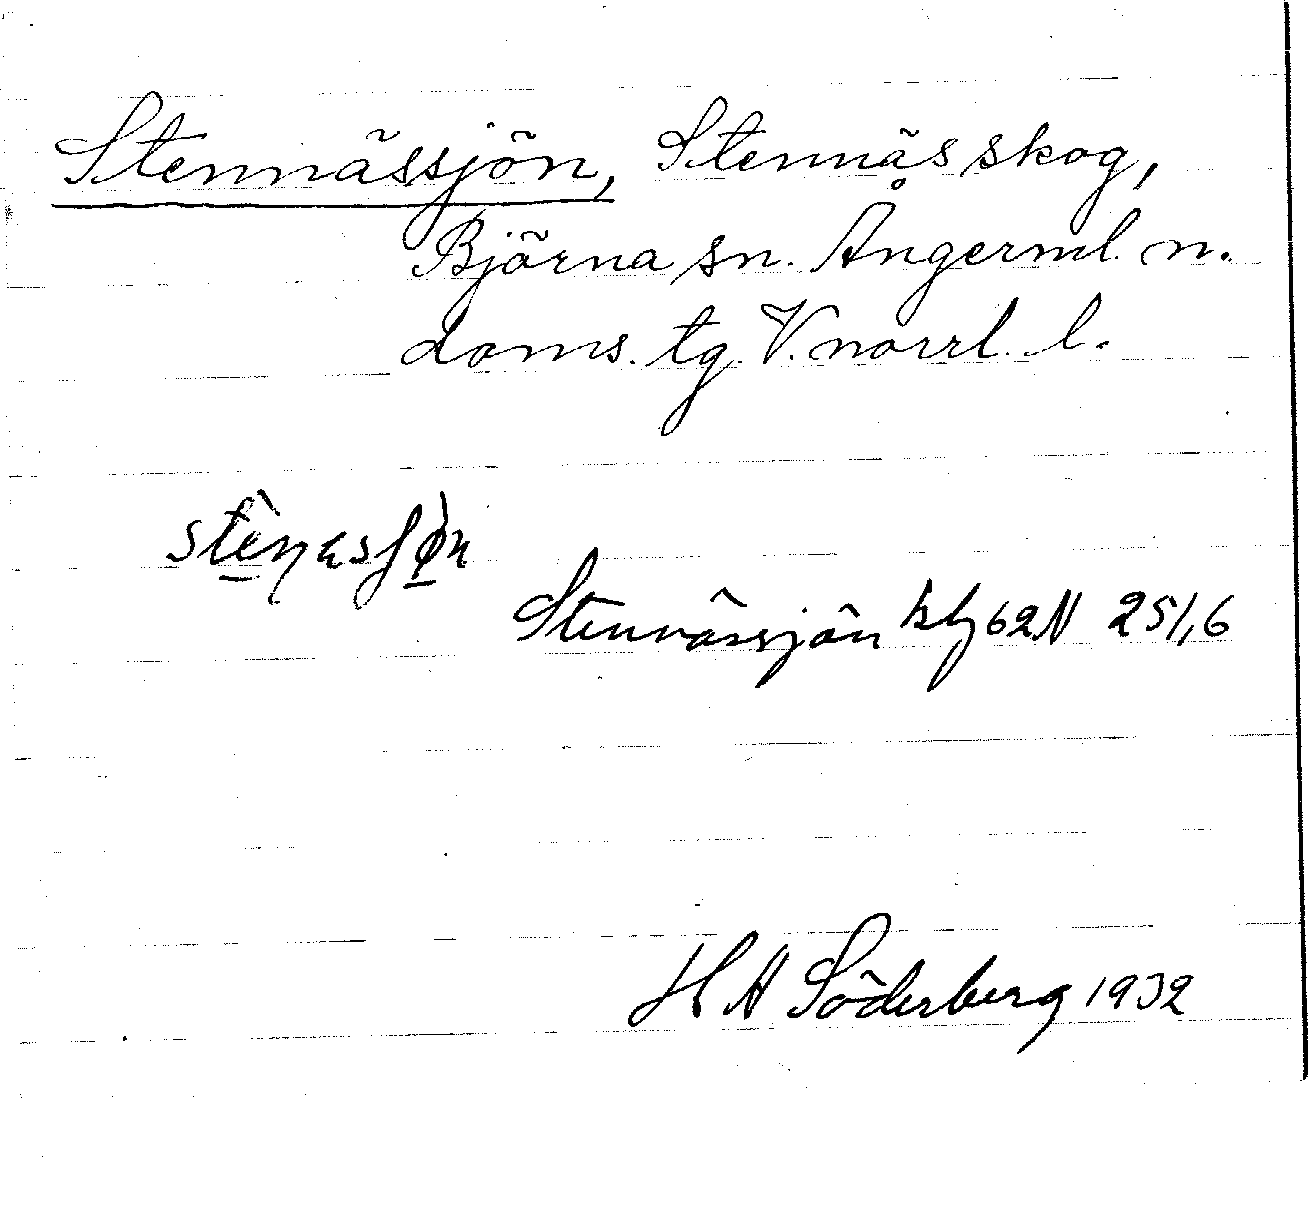 Stennässjön, Stennäs skog,
Björna sn. Ångerml. n.
doms. tg V. norrl. l.
Stennässjön kbl 62N 251,6
H A Söderberg 1932